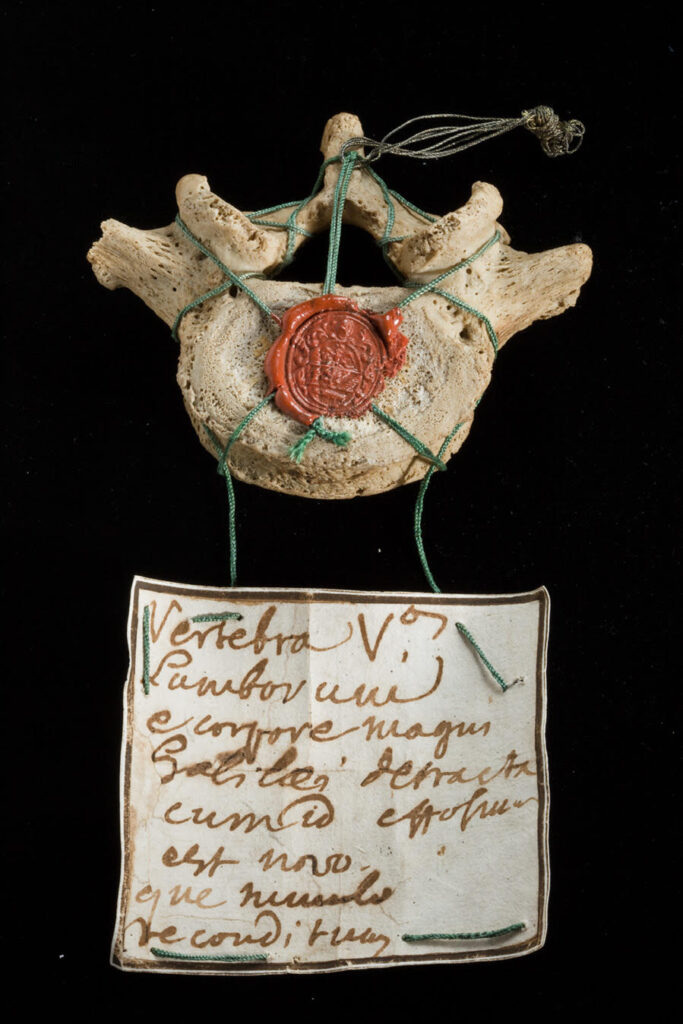 Vertebra V.ª
Lumborum
e corpore magni
Galilæi detracta
cum id effossum
est novo-
que tumulo
reconditum